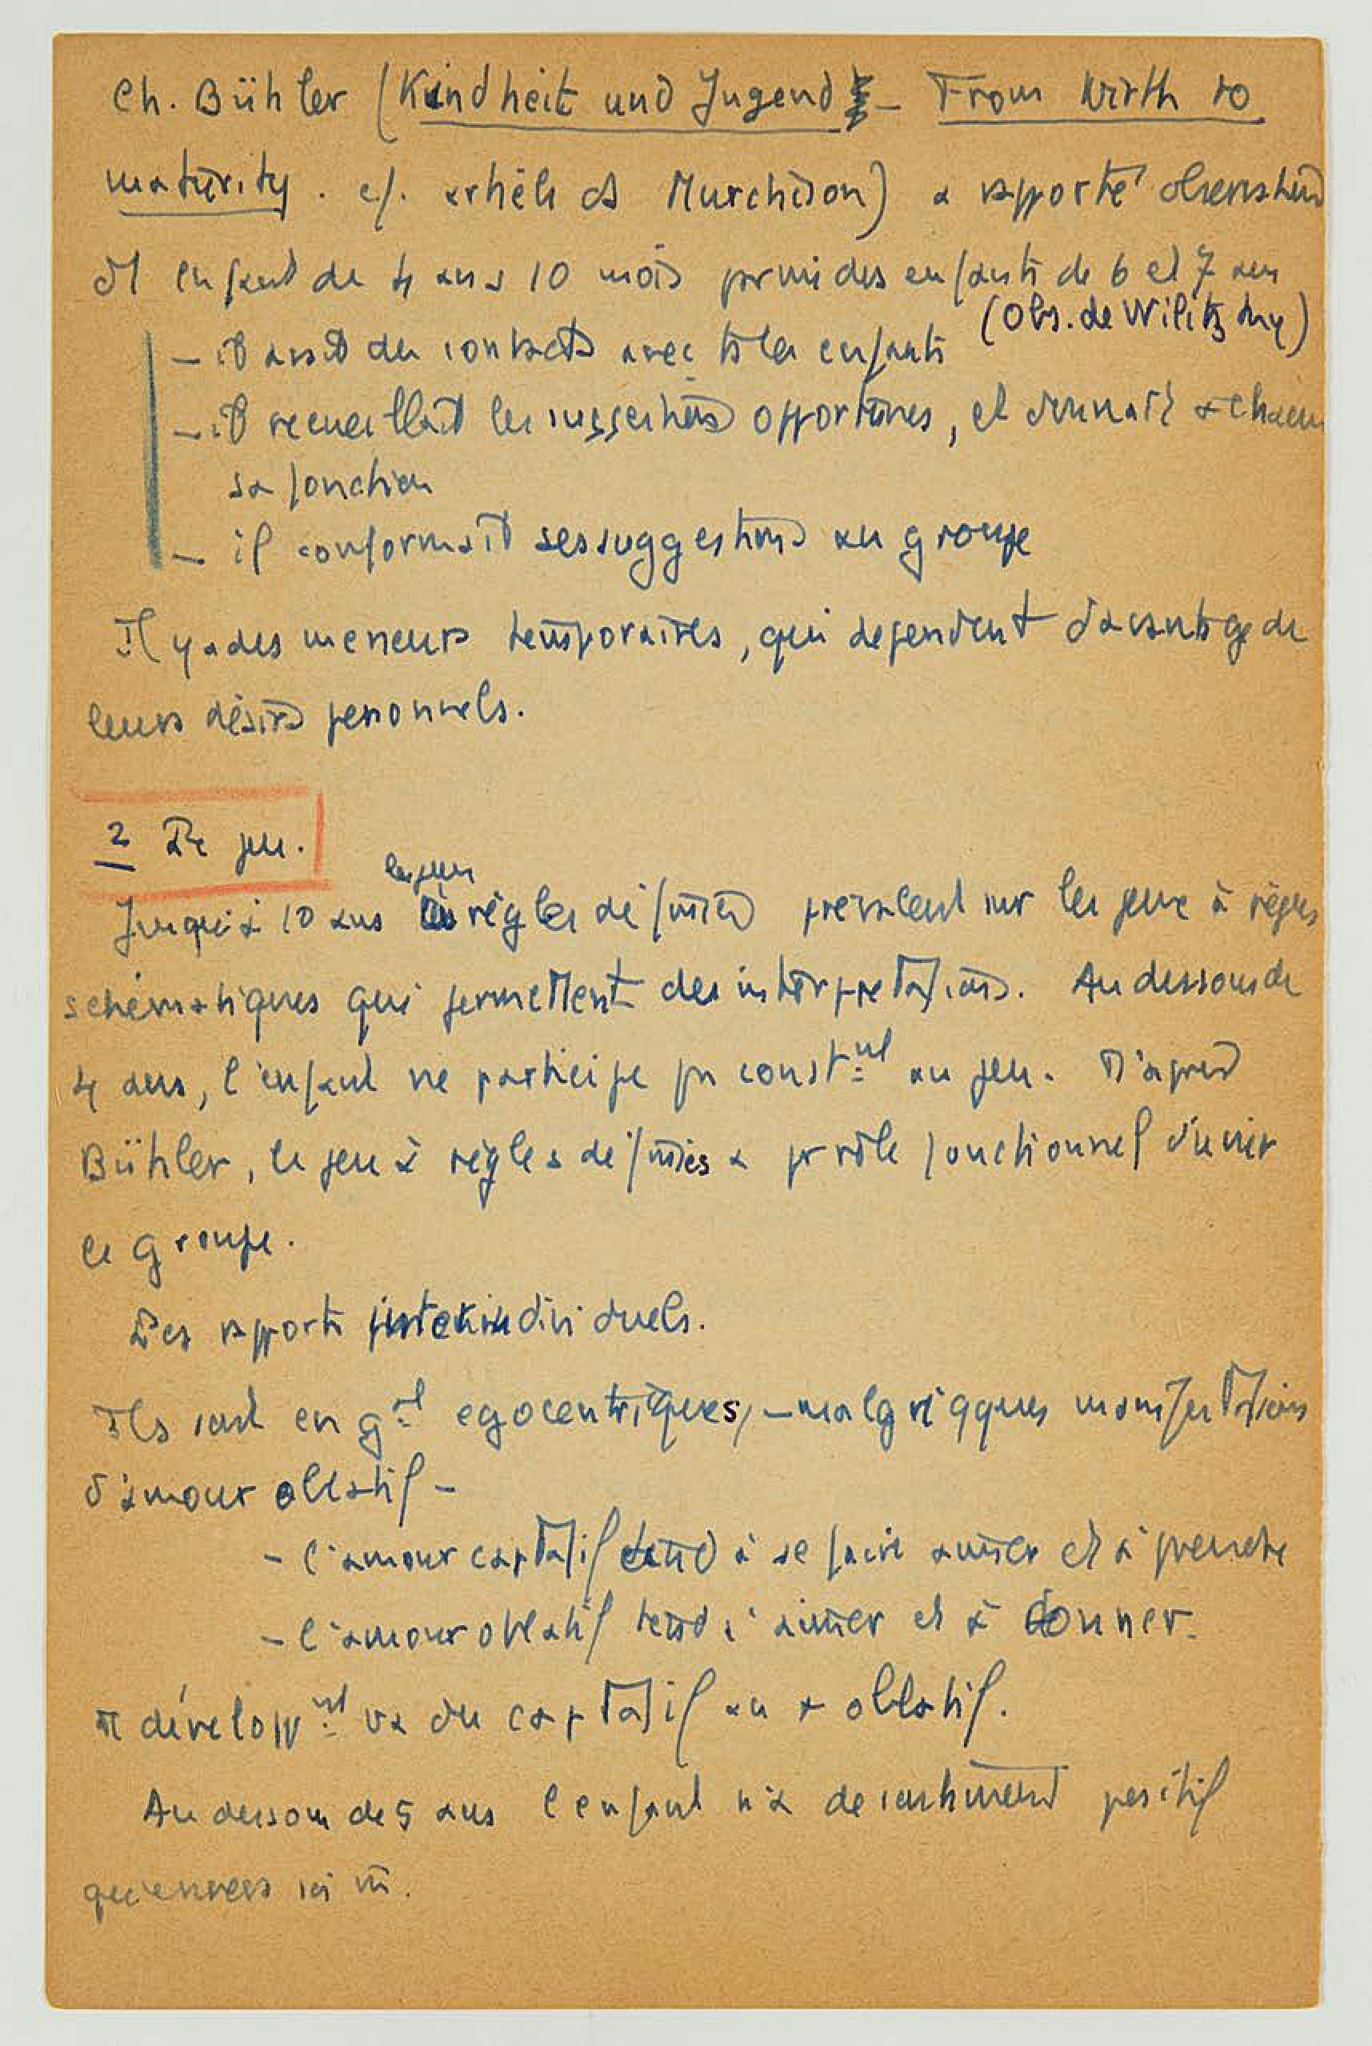 Ch. Bühler (Kindheit und Jugend – From birth to
maturity. cf. article ds Murchison) a rapporté observation
d'1 enfant de 4 ans 10 mois parmi des enfants de 6 et 7 ans
(Obs. de Wilitzky)
– il avait des contacts avec ts les enfants
– il recueillait les suggestions opportunes, et donnait à chacun
sa fonction
– il conformait ses suggestions au groupe
Il y a des meneurs temporaires, qui dependent davantage de
leurs désirs personnels.
2 Le jeu.
les jeux
Jusqu'à 10 ans à règles définies prévalent sur les jeux à règles
schématiques qui permettent des interprétations. Au dessous de
4 ans, l'enfant ne participe pas constnt au jeu. D'après
Bühler, le jeu à règles définies a pr rôle fonctionnel d'unir
le groupe.
Les rapports interindividuels.
Ils sont en gal egocentriques, – malgré qques manifestations
d'amour oblatif –
– l'amour captatif tend à se faire aimer et à prendre
– l'amour oblatif tend à aimer et à donner.
Le développnt va du captatif au + oblatif.
Au dessous de 5 ans l'enfant n'a de sentiment positif
qu'envers soi m.